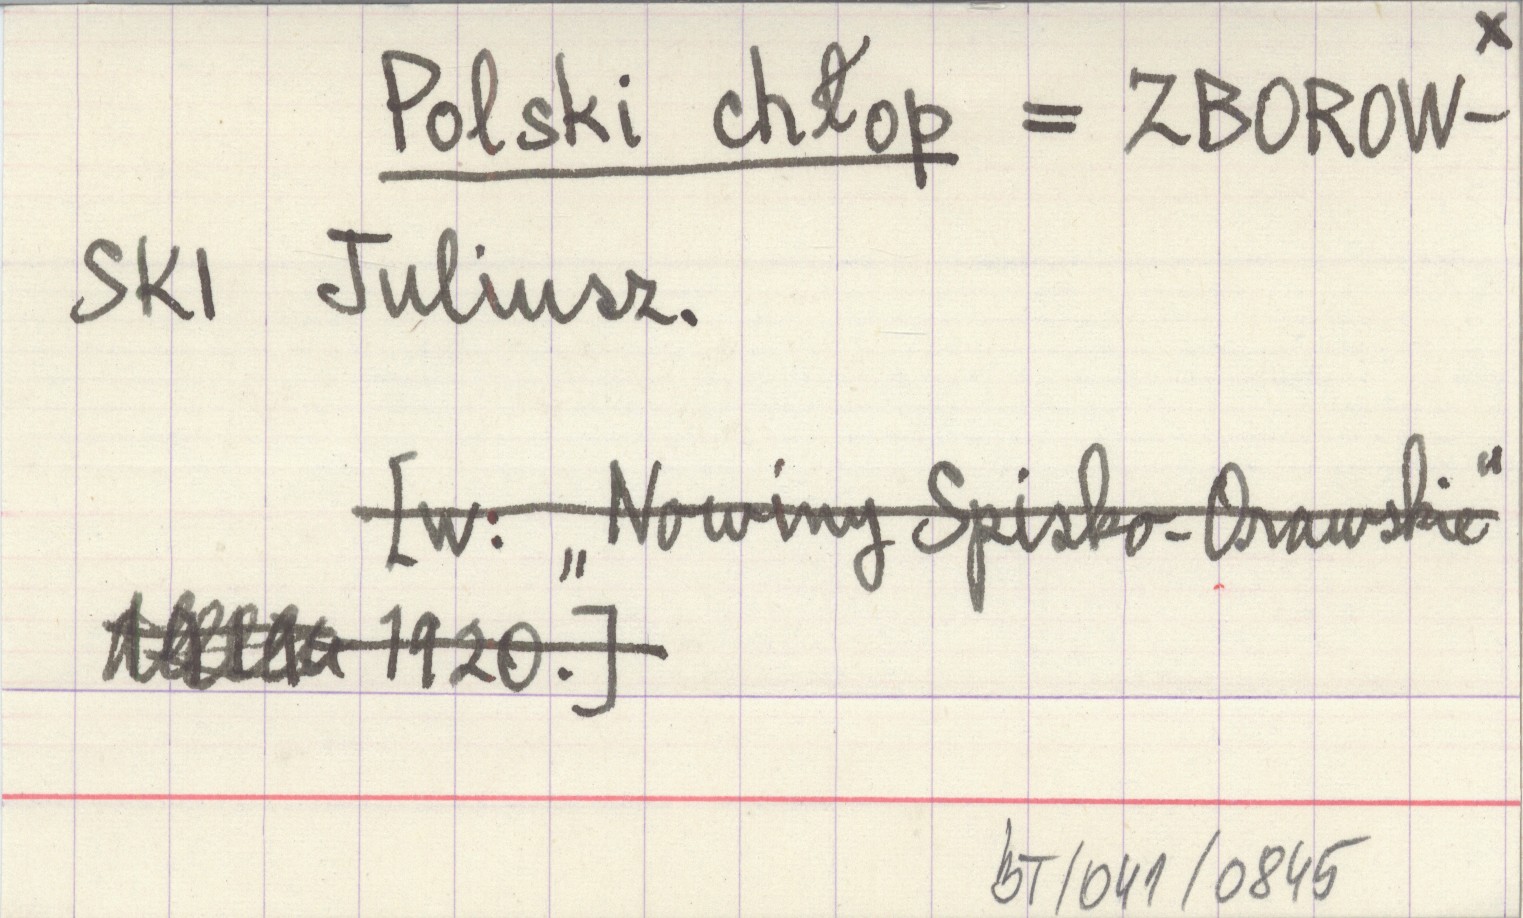 x
Polski chłop = ZBOROW-
SKI Juliusz.
[w: „Nowiny Spisko-Orawskie"
1920.]
BT/041/0845